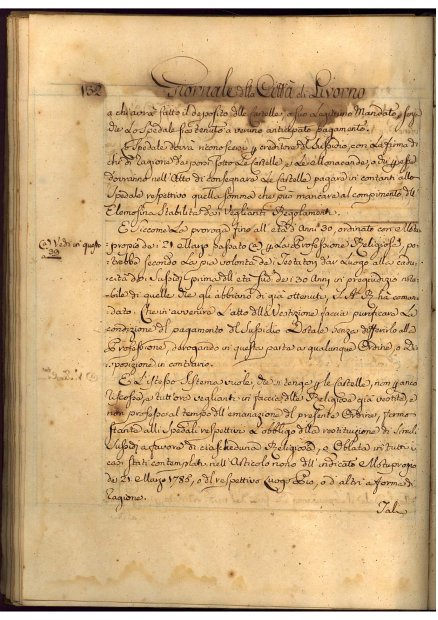 132 Giornale della Città di Livorno
a chi avrà fatto il deposito delle Cartelle, o suo Legittimo Mandato, senza
che Lo Spedale sia tenuto a veruno anticipato pagamento.
E Spedale dovrà riconoscersi creditore del Sussidio, con La firma di
chi di ragione da porsi sotto Le Cartelle, e Le Monacande, o
dovranno nell'Atto di consegnare Le Cartelle pagare in contanti allo
Spedale respettivo quella somma che può mancare al compimento dell'
Elemosina Stabilita dai Veglianti Regolamenti.
E siccome La proroga fino all'età d'Anni 20, ordinato con Motu-
proprio de' 21 Marzo passato La Professione Religiosa, po-
trebbe secondo La pia volontà dei Testatori dar Luogo alla cadu-
cità de' Sussidi prima dell'età de' 20 Anni in pregiudizio nota-
bile di quelle che gli abbiano di già ottenuti, S. A. R. ha coman-
dato, Che in avvenire L'atto della Vestizione faccia purificare La
condizione del pagamento del Sussidio Dotale senza differirlo alla
Professione, derogando in questa parte a qualunque Ordine, o di-
sposizione in contrario.
E L'istesso Sistema vuole, che si tenga Le Cartelle, non anco
riscosse, a tutt'ora veglianti in faccia delle Religiose già vestite, e
non professe al tempo dell'emanazione del presente Ordine, ferma
stante alli Spedali respettivi L'obbligo della restituzione di simili
Sussidi a favore di ciascheduna Religiosa, o Oblata in tutti i
casi stati contemplati nell'Articolo nono dell'indicato Motuproprio
de' 21 Marzo 1785, o del respettivo Luogo Pio, o d'altri a forma di
ragione.
Tale
Vedi in questo